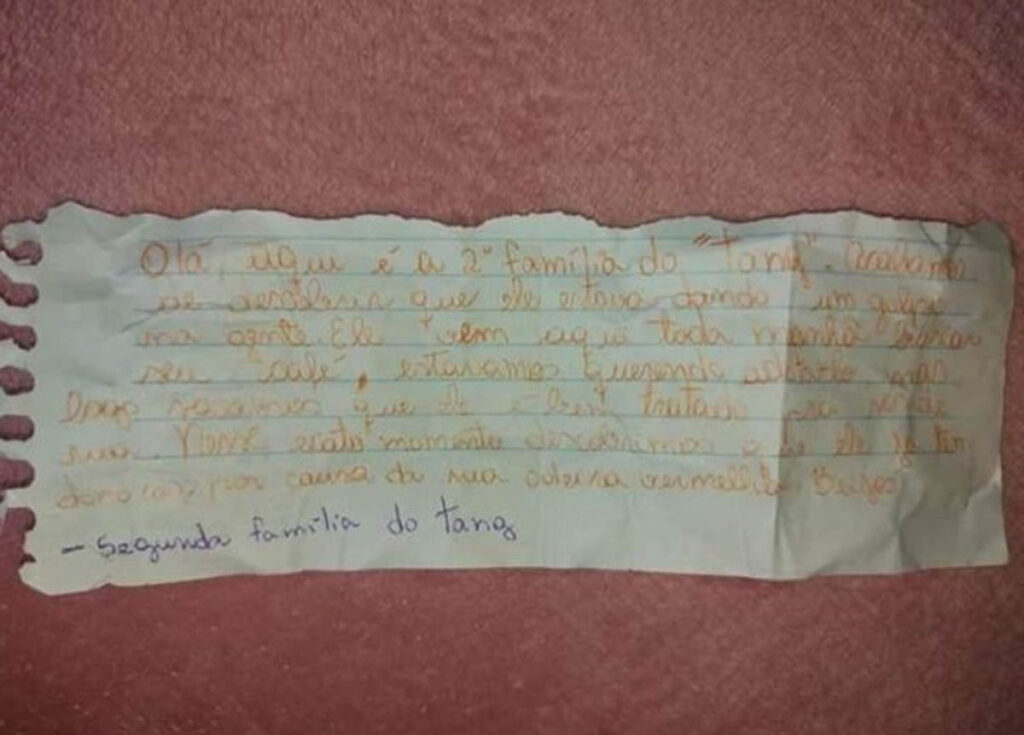 Olá, aqui é a 2ª família do "tang". Acabamos
de descobrir que ele estava dando um golpe
na gente. Ele vem aqui toda manhã buscar
seu café, estavamos querendo adotalo mas
logo que ele é bem tratado pra ser de
rua. Nesse exato momento descobrimos que ele já tem
dono por causa da sua coleira vermelha Beijos
- Segunda família do tang